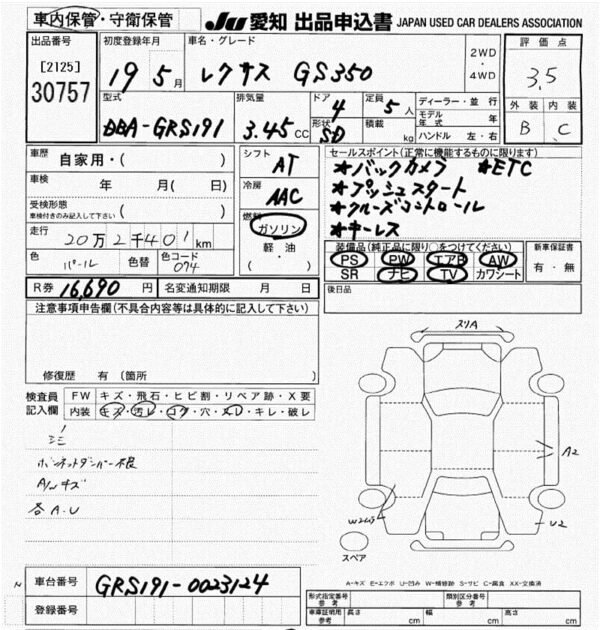 車内保管・守衛保管
JU 愛知 出品申込書 JAPAN USED CAR DEALERS ASSOCIATION
出品番号
[2125]
30757
初度登録年月
19年5月
車名・グレード
レクサス GS350
2WD
・
4WD
評価点
3.5
外装 内装
B C
型式
DBA-GRS191
排気量
3.45 CC
ドア
4
形状
SD
定員
5人
積載
kg
ディーラー・並行
モデル年式 年
ハンドル 左・右
車歴
自家用・( )
車検
年 月(日)
受検形態
車検付きのみ記入して下さい
( )
走行
20万2千401km
色
パール
色替
色コード
074
シフト
AT
冷房
AAC
燃料
ガソリン
軽・油
( )
セールスポイント(正常に機能するものに限ります)
★バックカメラ ★ETC
★プッシュスタート
★クルーズコントロール
★キーレス
装備品(純正品に限り○をつけてください)
PS PW エアB AW
SR ナビ TV カワシート
新車保証書
有・無
R券 16,690円
名変通知期限 月 日
後日品
注意事項申告欄(不具合内容等は具体的に記入して下さい)
修復歴 有(箇所 )
検査員記入欄
FW キズ・飛石・ヒビ割・リペア跡・X要
内装 キズ・汚レ・コゲ・穴・スレ・キレ・破レ
ボンネットダンパー不良
A/Wキズ
各A.U
スリA
A2
W2
U2
スペア
A-キズ E-エクボ U-凹み W-補修跡 S-サビ C-腐食 XX-交換済
N
車台番号
GRS191-0023124
登録番号
形式指定番号
参考
類別区分番号
参考
車庫証明用
参考
長さ cm
幅 cm
高さ cm